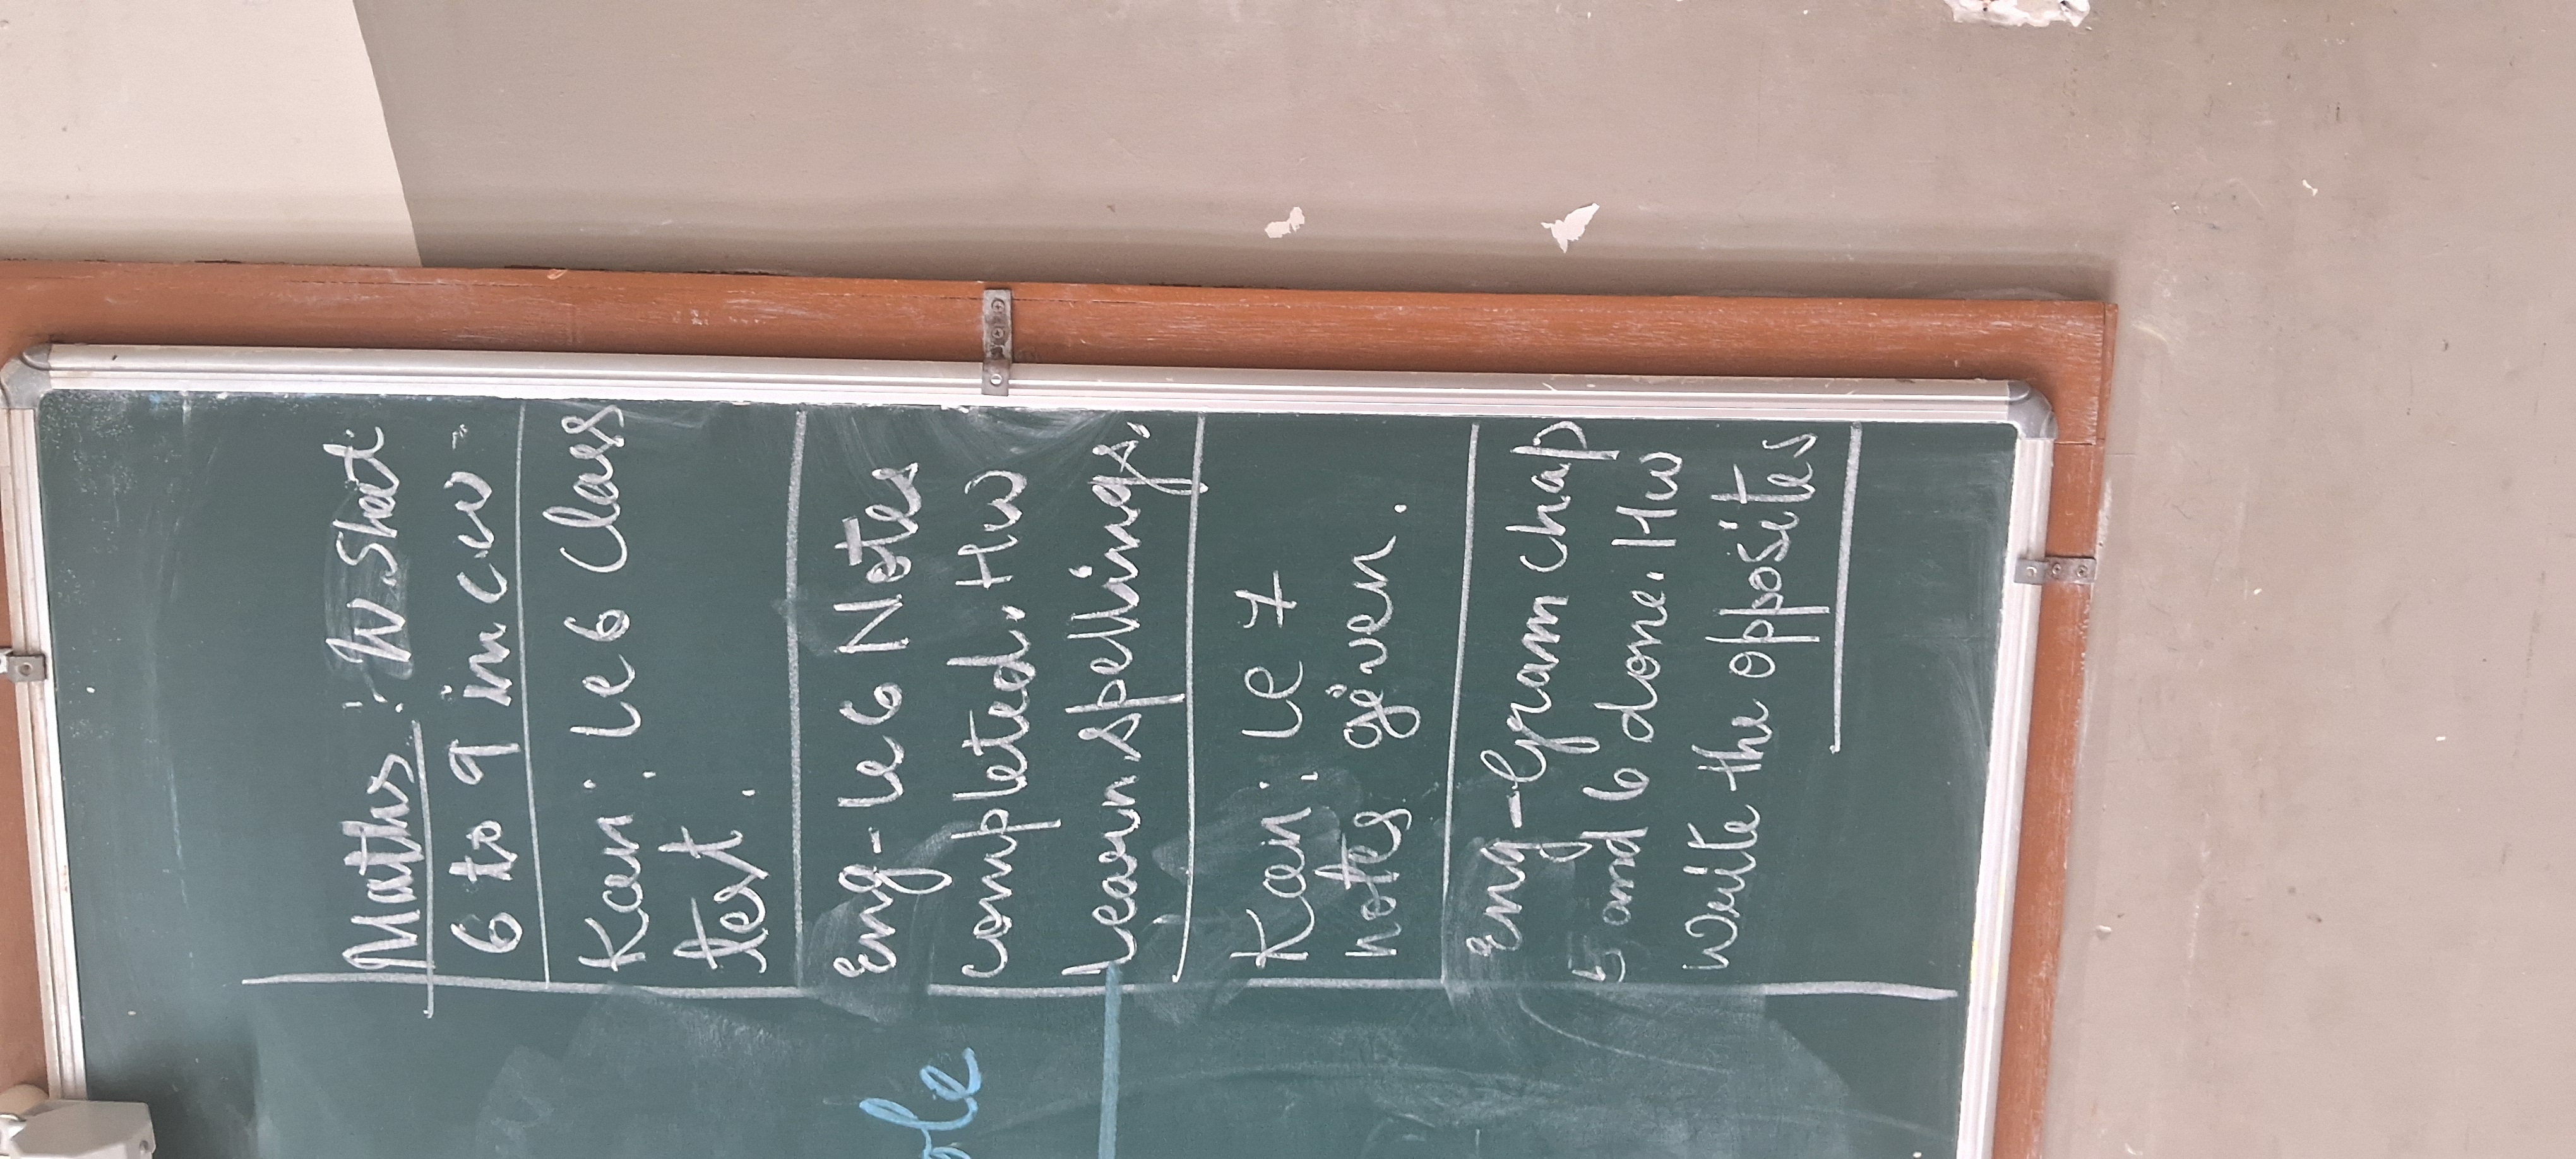 Maths : W.Sheet
6 to 9 in C.W -
Kan : Le 6 Class
test.
Eng - Le 6 Notes
completed. Hw
Learn spellings.
Kan : Le 7
notes given.
Eng - Gram chap
5 and 6 done. Hw
Write the opposites